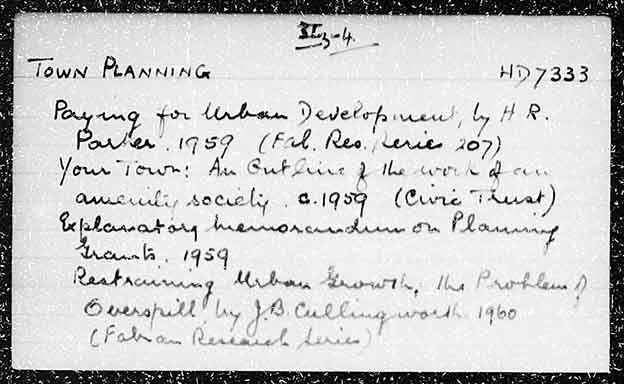 TOWN PLANNING
HD7333
Paying for Urban Development, by H R.
Parker. 1959 (Fab. Res. Series 207)
Your Town: An Outline of the work of an
amenity society. c.1959 (Civic Trust)
Explanatory Memorandum on Planning
Grants. 1959
Restraining Urban Growth, the Problem of
Overspill by J.B. Cullingworth 1960
(Fabian Research Series)